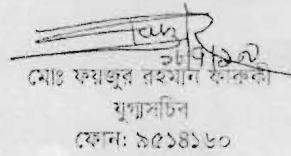 মোঃ ফয়জুর রহমান ফারুকী
যুগ্মসচিব
ফোন: ৯৫১৪১৬০